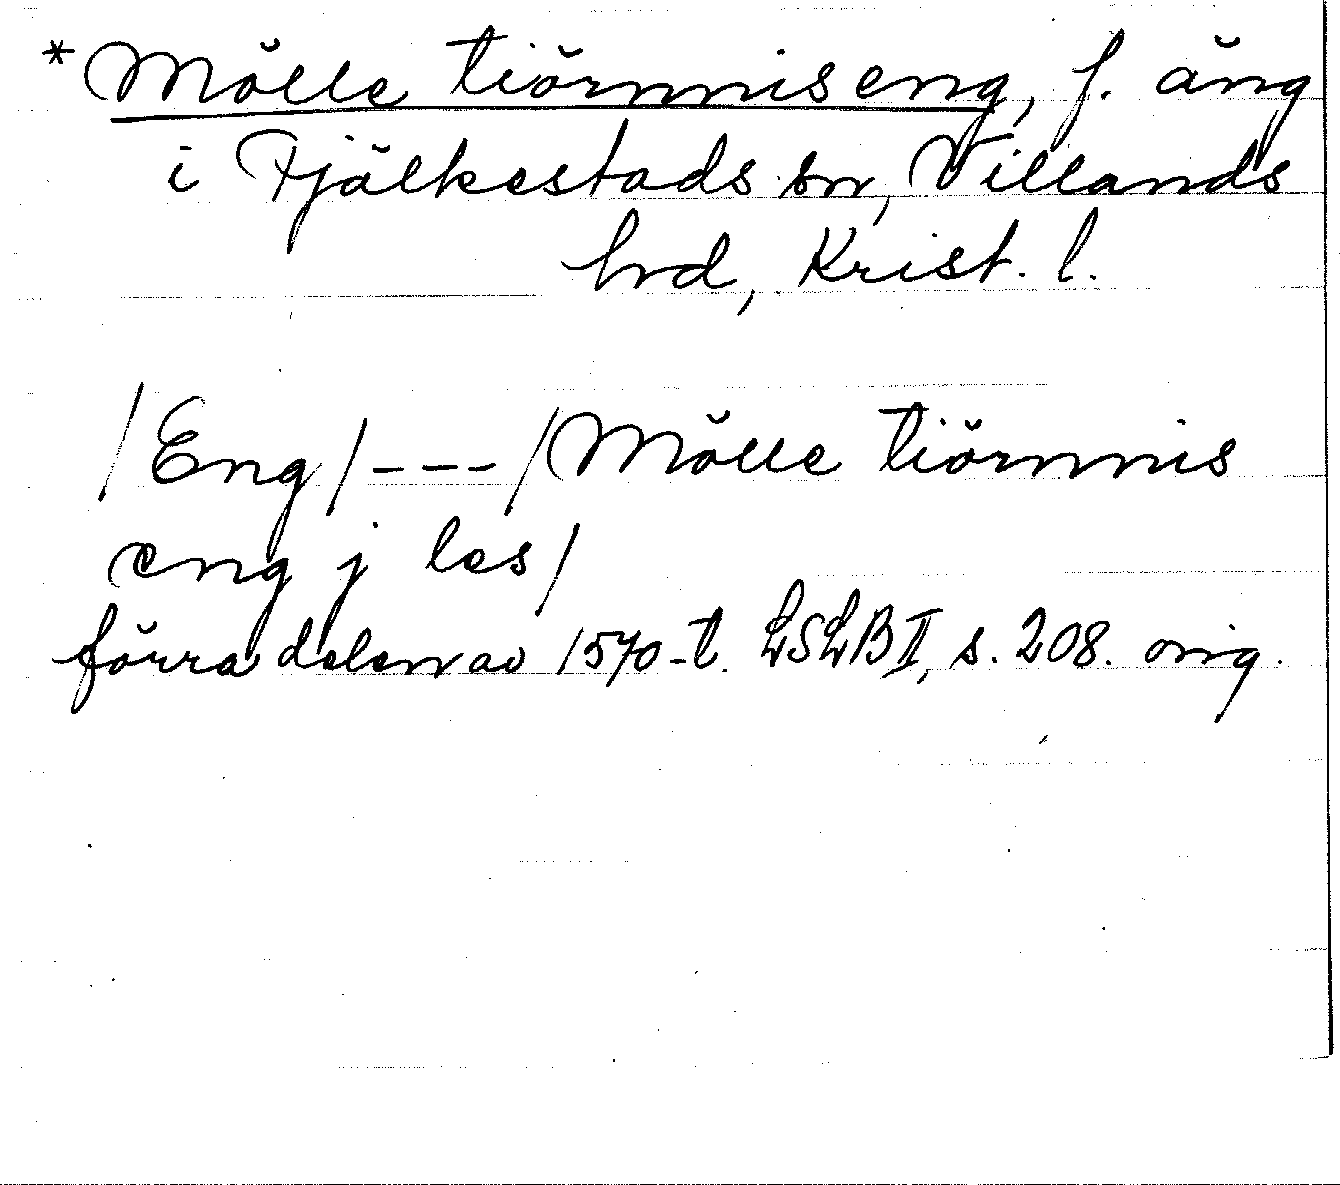 *Mölle tiörnnis eng, f. äng
i Fjälkestads sn, Villands
hrd, Krist. l.
/Eng/ --- /Mölle tiörnnis
eng j les/
förra delen av 1570-t. LSLB II, s. 208. orig.